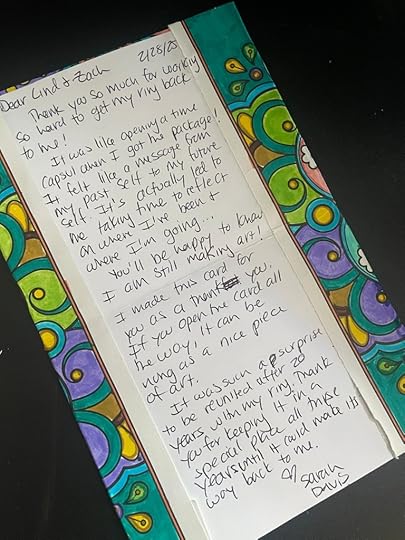 2/28/25
Dear Cind & Zach
Thank you so much for working
so hard to get my ring back
to me!
It was like opening a time
capsul when I got his package!
It felt like a message from
my past self to my future
self. It's actually led to
me taking time to reflect
on where I've been &
where I'm going...
You'll be happy to know
I am still making art!
I made this card for
you as a thank you,
If you open the card all
the way, it can be
hung as a nice piece
of art.
It was such a surprise
to be reunited after 20
years with my ring. Thank
you for keeping it in a
special place all these
years until it could make its
way back to me.
♡ Sarah
Davis